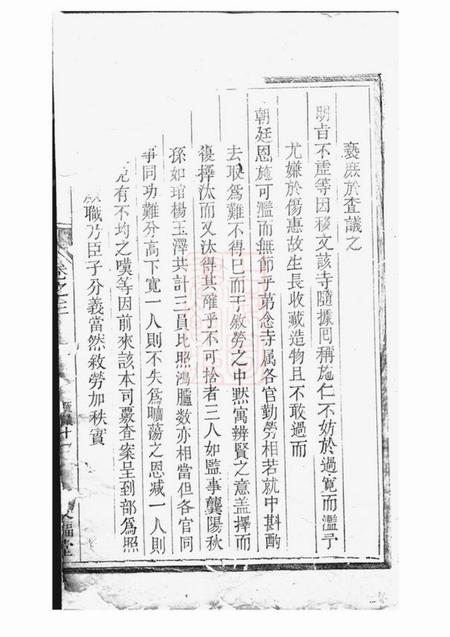 褻庶於查議之
明旨不虛等因移文該寺隨據囘稱施仁不妨於過寬而濫予
尤嫌於傷惠故生長收藏造物且不敢過而
朝廷恩施可濫而無節乎第念寺属各官勤勞相若就中斟酌
去取爲難不得已而于敘勞之中默寓辨賢之意盖擇而
復擇汰而又汰得其確乎不可捨者三人如監事龔陽秋
孫如琯楊玉澤共計三員比照鴻臚数亦相當但各官同
事同功難分高下寛一人則不失爲曠蕩之恩减一人則
有不均之嘆等因前來該本司覆查案呈到部爲照
職乃臣子分義當然敘勞加秩實
卷之三